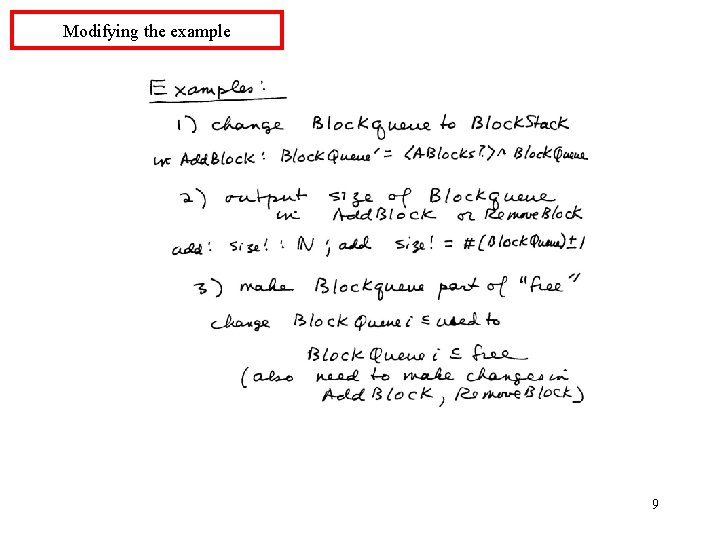 Modifying the example
Examples:
1) change Blockqueue to BlockStack
in AddBlock: BlockQueue' = ⟨ABlocks?⟩ ^ BlockQueue
2) output size of Blockqueue
in AddBlock or RemoveBlock
add: size! : N ; add size! = #(BlockQueue) ± 1
3) make Blockqueue part of "free"
change BlockQueue i ⊆ used to
BlockQueue i ⊆ free
(also need to make changes in
AddBlock, RemoveBlock)
9